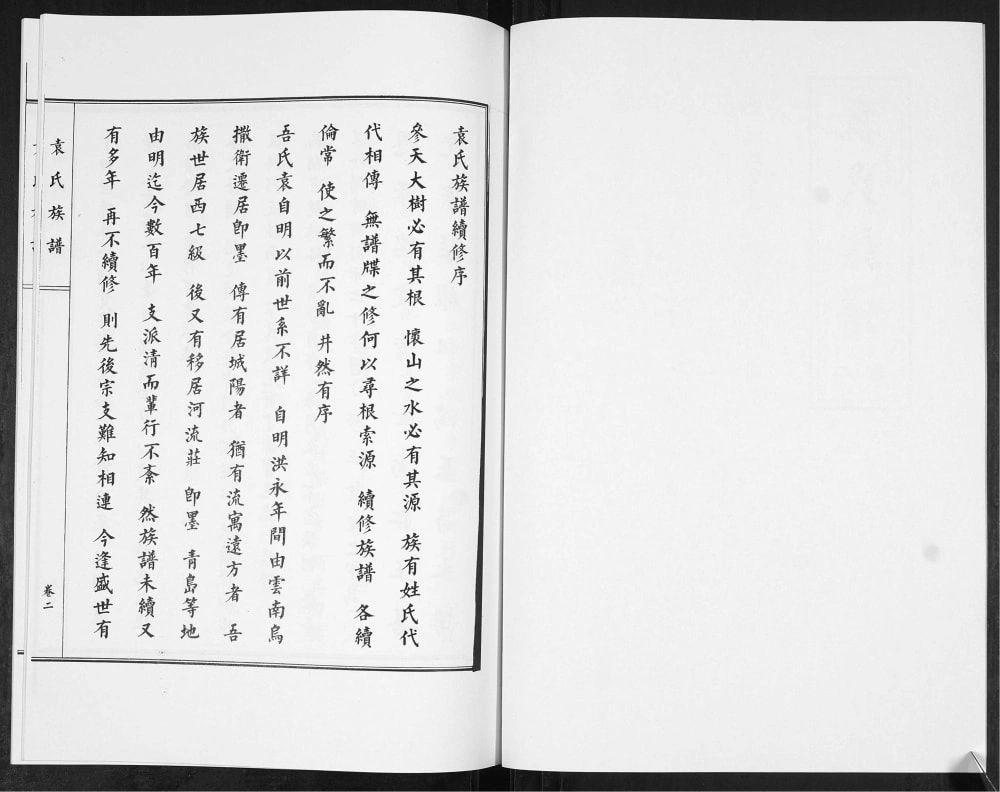 袁氏族譜續修序
參天大樹必有其根　懷山之水必有其源　族有姓氏代
代相傳　無譜牒之修何以尋根索源　續修族譜　各續
倫常　使之繁而不亂　井然有序
吾氏袁自明以前世系不詳　自明洪永年間由雲南烏
撒衛遷居即墨　傳有居城陽者　猶有流寓遠方者　吾
族世居西七級　後又有移居河流莊　即墨　青島等地
由明迄今數百年　支派清而輩行不紊　然族譜未續又
有多年　再不續修　則先後宗支難知相連　今逢盛世有
袁氏族譜
卷二